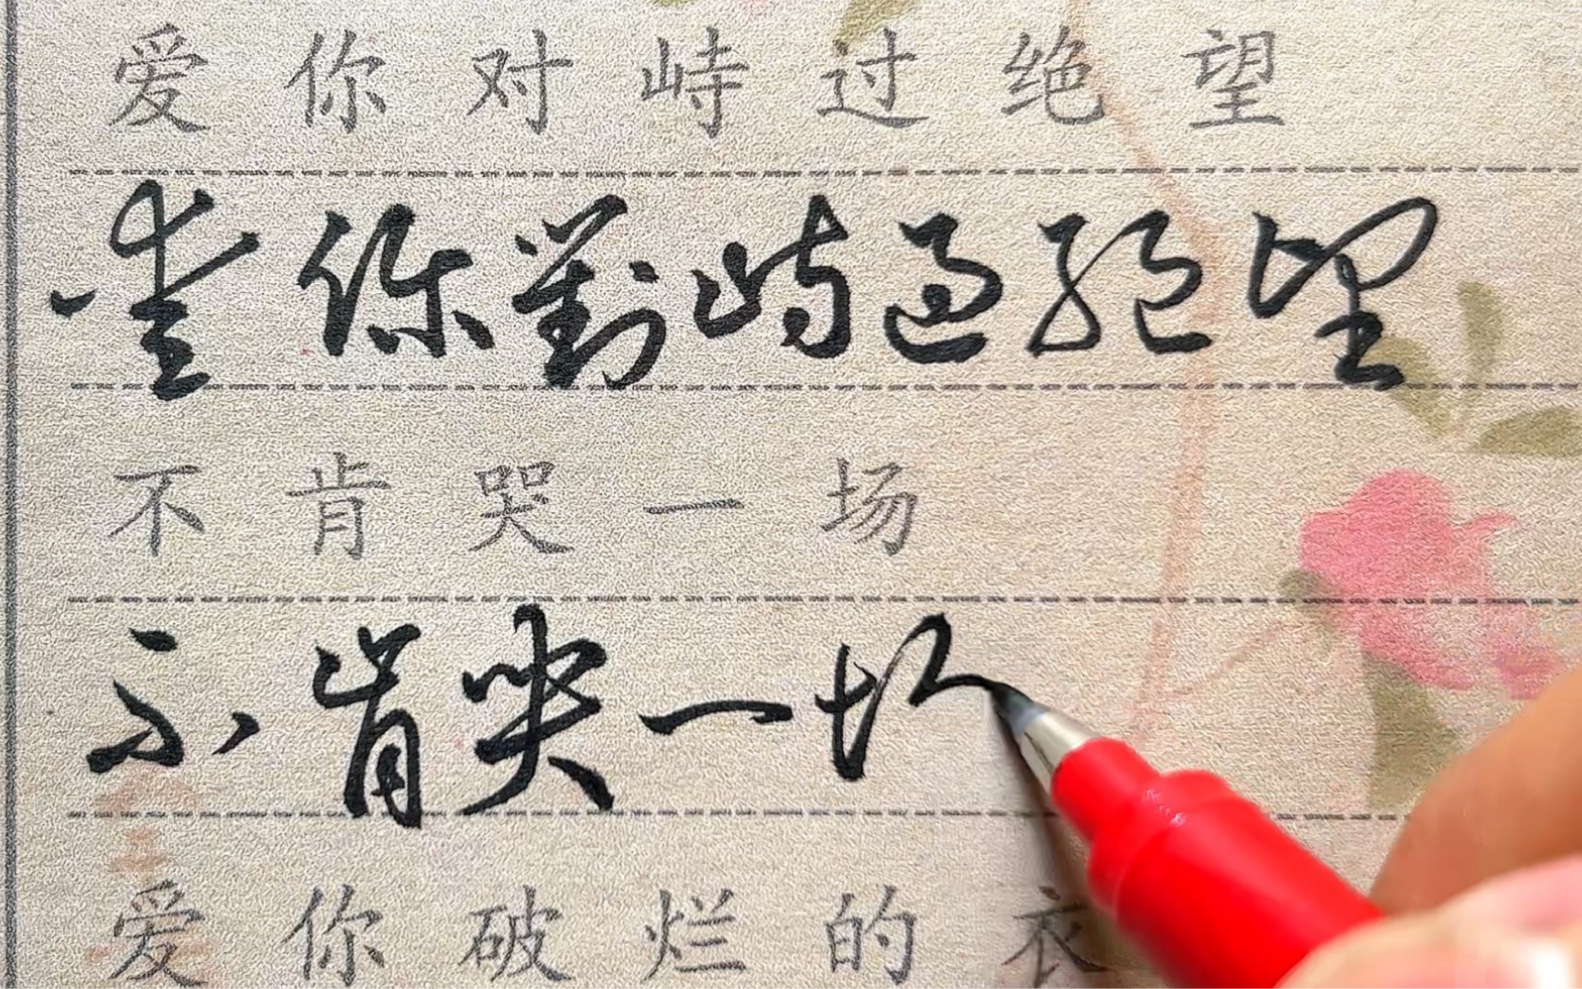 爱你对峙过绝望
爱你對峙過絕望
不肯哭一场
不肯哭一
爱你破烂的衣